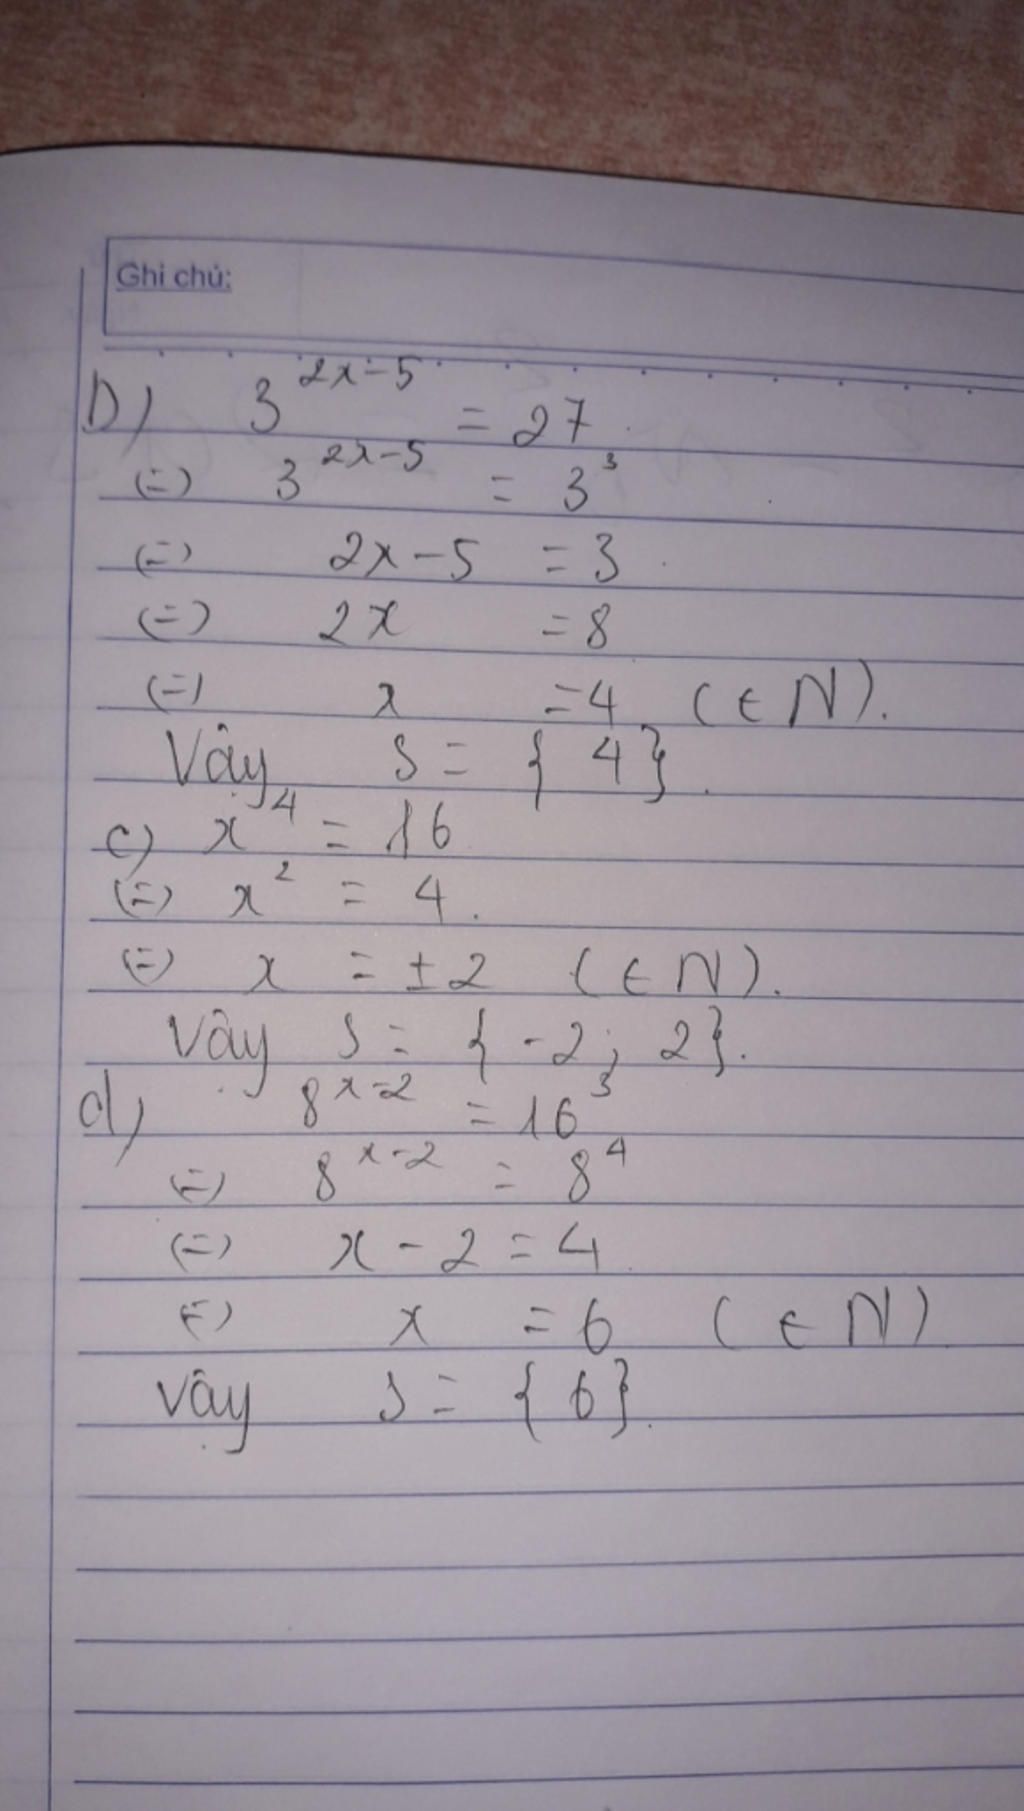 Ghi chú:
b) 3^{2x-5} = 27
(=) 3^{2x-5} = 3^3
(=) 2x-5 = 3
(=) 2x = 8
(=) x = 4 (∈ N).
Vậy S = { 4}.
c) x^4 = 16
(=) x^2 = 4.
(=) x = ±2 (∈ N).
Vậy S = { -2; 2}.
d) 8^{x-2} = 16^3
(=) 8^{x-2} = 8^4
(=) x - 2 = 4
(=) x = 6 (∈ N)
Vậy S = { 6}.